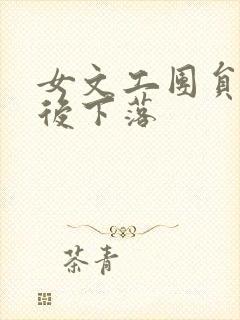 女文工團員
後下落
茶青